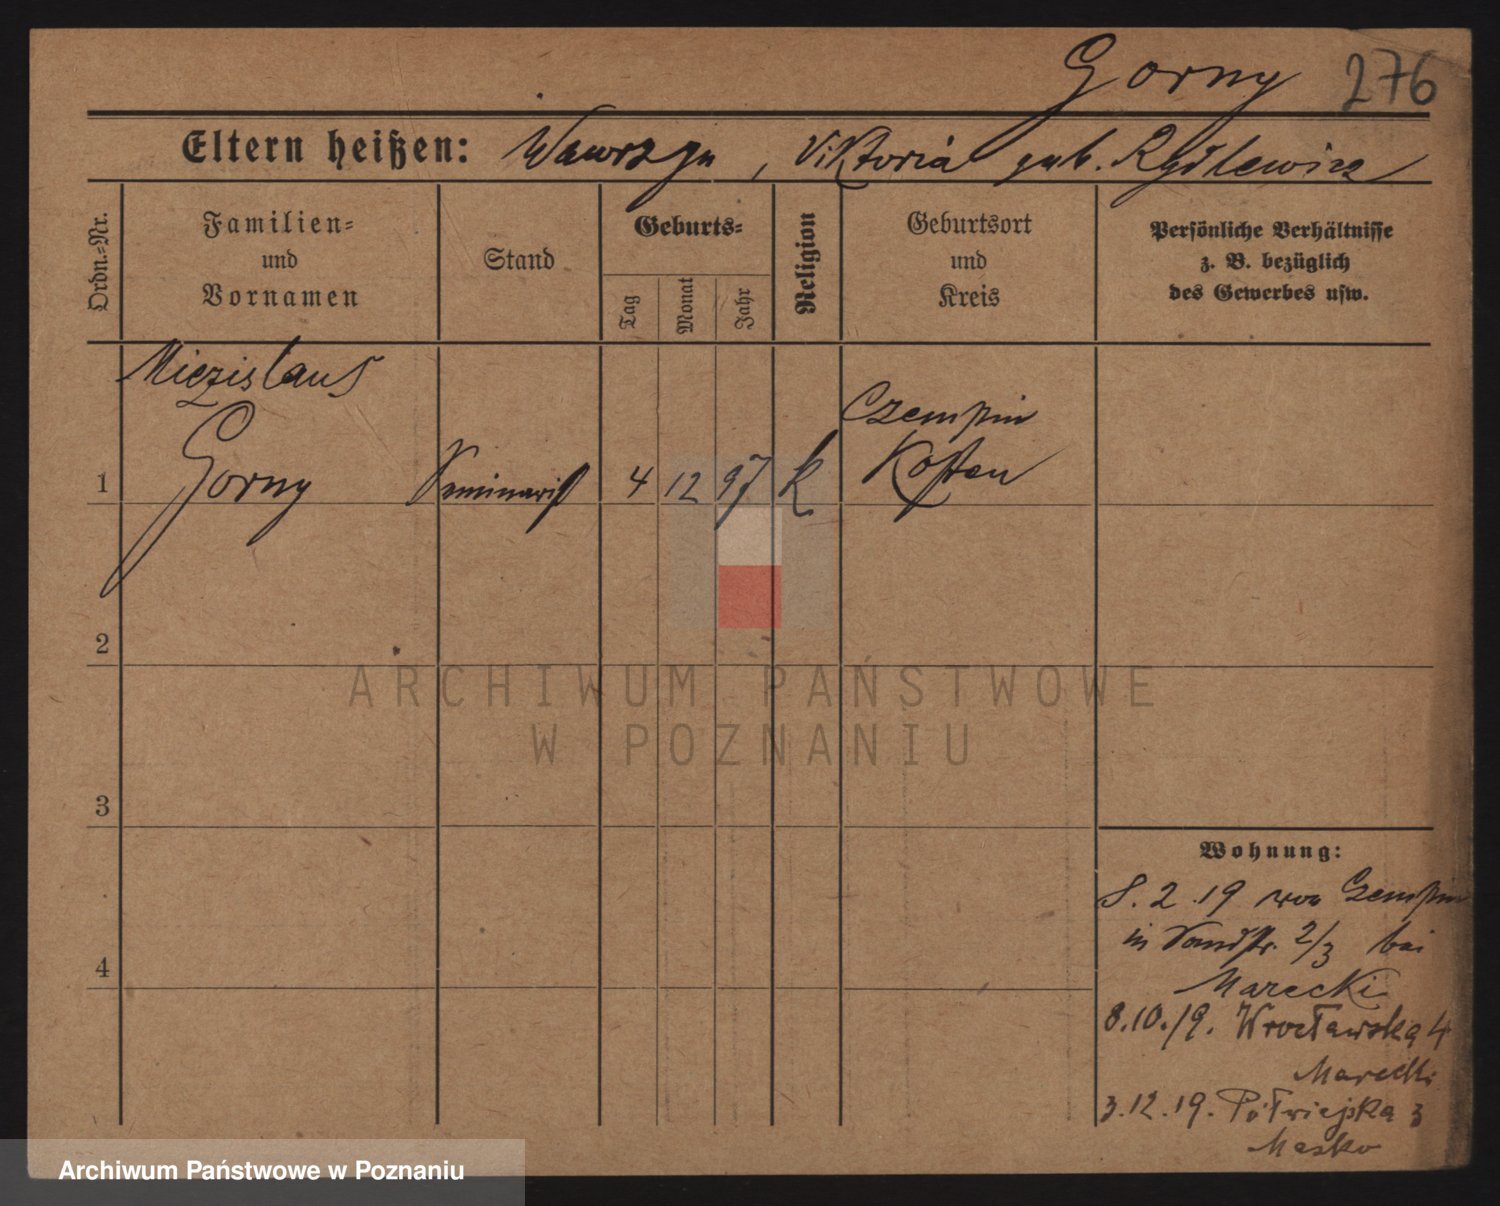 Gorny 276
Eltern heißen: Wawrzyn, Viktoria geb. Rydlewicz
Ordn.-Nr.
Familien-
und
Vornamen
Stand
Geburts-
Tag
Monat
Jahr
Religion
Geburtsort
und
Kreis
Persönliche Verhältnisse
z. B. bezüglich
des Gewerbes usw.
Miezislaus
Gorny
1
Seminarist 4 12 97 k
Czempin
Kosten
2
3
4
ARCHIWUM PAŃSTWOWE
W POZNANIU
Wohnung:
8. 2. 19 von Czempin
in Sandstr. 2/3 bei
Marecki
8.10.19. Wrocławska 4
Marecki
3.12.19. Półwiejska 3
Masko
Archiwum Państwowe w Poznaniu